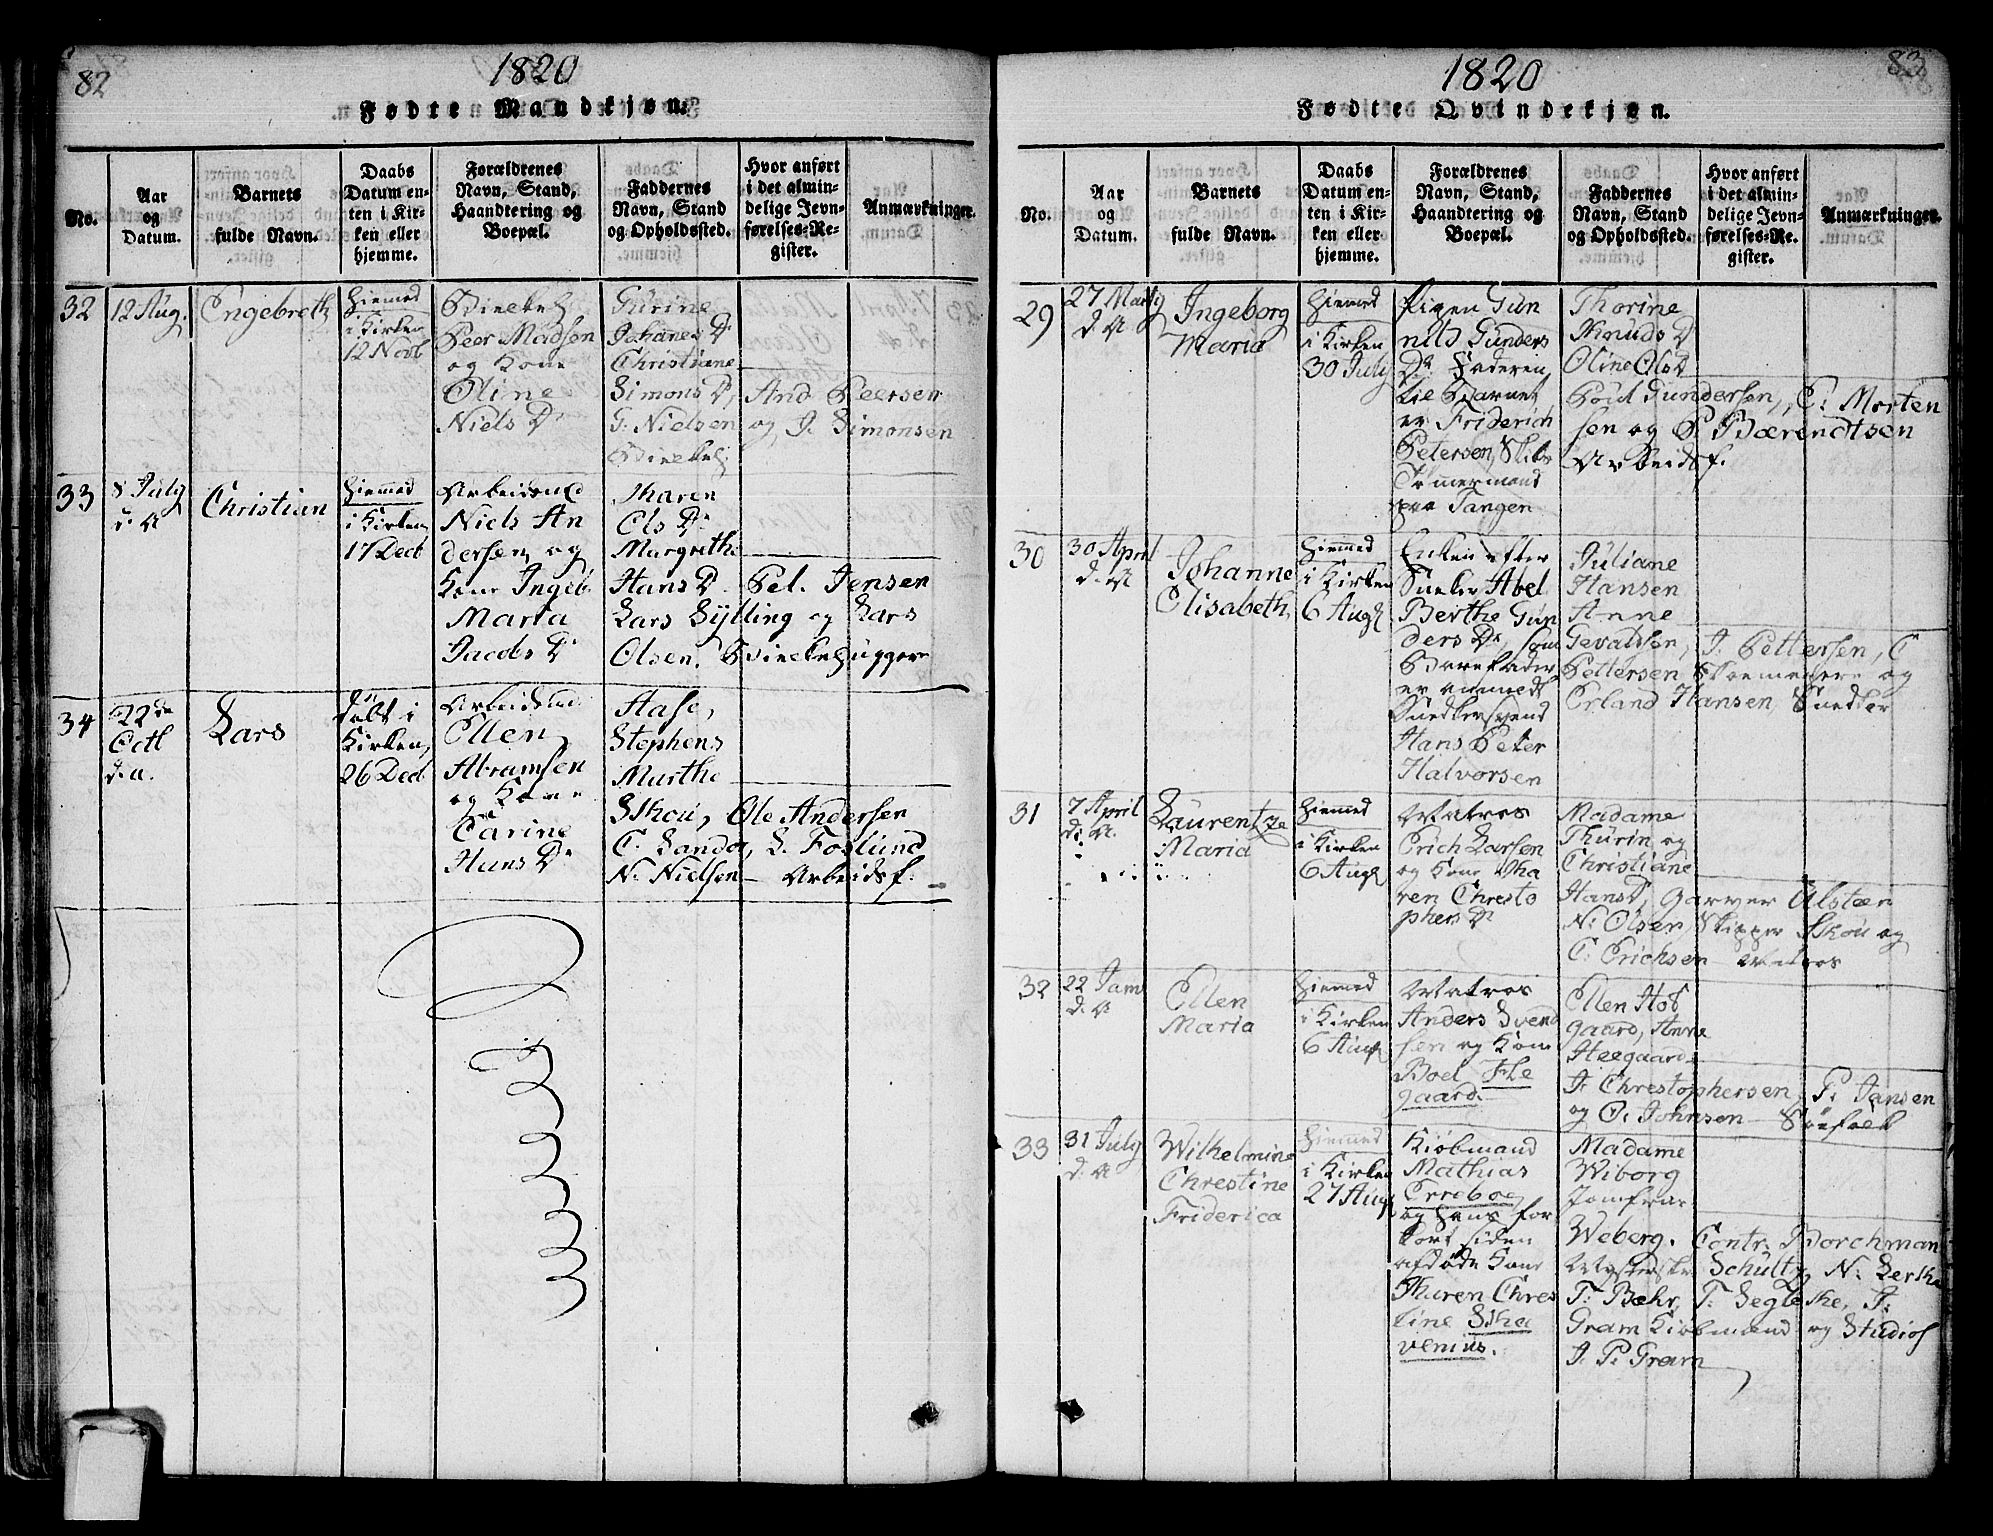 82
1820
Fødte Mandkjøn.
No.
Aar
og
Datum.
Barnets
fulde Navn.
Daabs
Datum en-
ten i Kir-
ken eller
hjemme.
Forældrenes
Navn, Stand,
Haandtering og
Boepæl.
Faddernes
Navn, Stand
og Opholdssted.
Hvor anført
i det almin-
delige Jevn-
førelses-Re-
gister.
Anmærkninger.
32
12 Aug.
Engebreth
Hiemed
i Kirken
12 Novb
Peer Madsen
og Kone
Oline
Niels Dr
Gurine
Johanes Dr
Christiane
Simons D,
G. Nielsen
And Peersen
og J. Simonsen
33
8 July
d. A
Christian
Hiemmed
i Kirken
17 Decb
Arbeidsmd
Niels An
dersen og
Kone Ingeb.
Maria
Jacobs Dr
Maren
Ols Dr
Margrethe
Hans D. Pet. Jensen
Lars Sylling og Lars
Olsen.
34
22de
Octb
d. a.
Lars
døbt i
Kirken,
26 Decb
Arbeidsmd.
Ellen
Abramsen
og Kone
Carine
Hans Dr
Aase,
Stephens
Marthe
Skou, Ole Andersen
C. Sando, S. Foslund
N. Nielsen — Arbeidsf.
83
1820
Fødte Qvindekjøn.
No.
Aar
og
Datum.
Barnets
fulde Navn.
Daabs
Datum en-
ten i Kir-
ken eller
hjemme.
Forældrenes
Navn, Stand,
Haandtering og
Boepæl.
Faddernes
Navn, Stand
og Opholdssted.
Hvor anført
i det almin-
delige Jevn-
førelses-Re-
gister.
Anmærkninger.
29
27 Marty
d. A
Ingeborg
Maria
Hiemed
i Kirken
30 July
Pigen Gun
nild Gunders
Dr. Faderen
til Barnet
er Friderich
Petersen, Skibs
Tømermand
paa Tangen
Thorine
Knuds D
Oline Ols D
Poul Gundersen, C. Morten
sen og P. Bærendtsen
Arbeidsf.
30
30 April
d. A
Johanne
Elisabeth
Hiemmed
i Kirken
6 Augs
Enken efter
Sneker Abel
Berthe Gun
ders Dr som
Barnefader
er anmeldt
Snedkersvend
Hans Peter
Halvorsen
Juliane
Hansen
Anne
Gevaldsen, J. Pettersen, C
Pettersen og
Erland Hansen, Snedker
31
7 April
d. A.
Laurentze
Maria
Hiemmed
i Kirken
6 Augs
Matros
Erich Larsen
og Kone Ma
ren Christo
phers Dr
Madame
Thurin og
Christiane
Hans D, Garver Alsteen
N. Olsen Skipper Skou og
C. Erichsen Matros
32
22 Jam
d. A
Ellen
Maria
Hiemed
i Kirken
6 Augs
Matros
Anders Svend
sen og Kone
Boel Hle
gaard.
Ellen Hof
gaard, Anne
Heegaard
J. Christophersen, P. Jansen
og C. Johnsen — Søefolk
33
31 July
d. A
Wilhelmine
Christine
Friderica
Hiemmed
i Kirken
27 Augs
Kiøbmand
Mathias
Erreboe
og Hans for
kort siden
afdøde Kone
Maren Chris
tine Ska
venius.
Madame
Wiborg
Jomfrue
Weberg. Contr. Borchman
Schultz, N. Lerche
T. Bæhr, T. Seglcke, J.
Gram Kiøbmænd og Studios
J. P. Gram